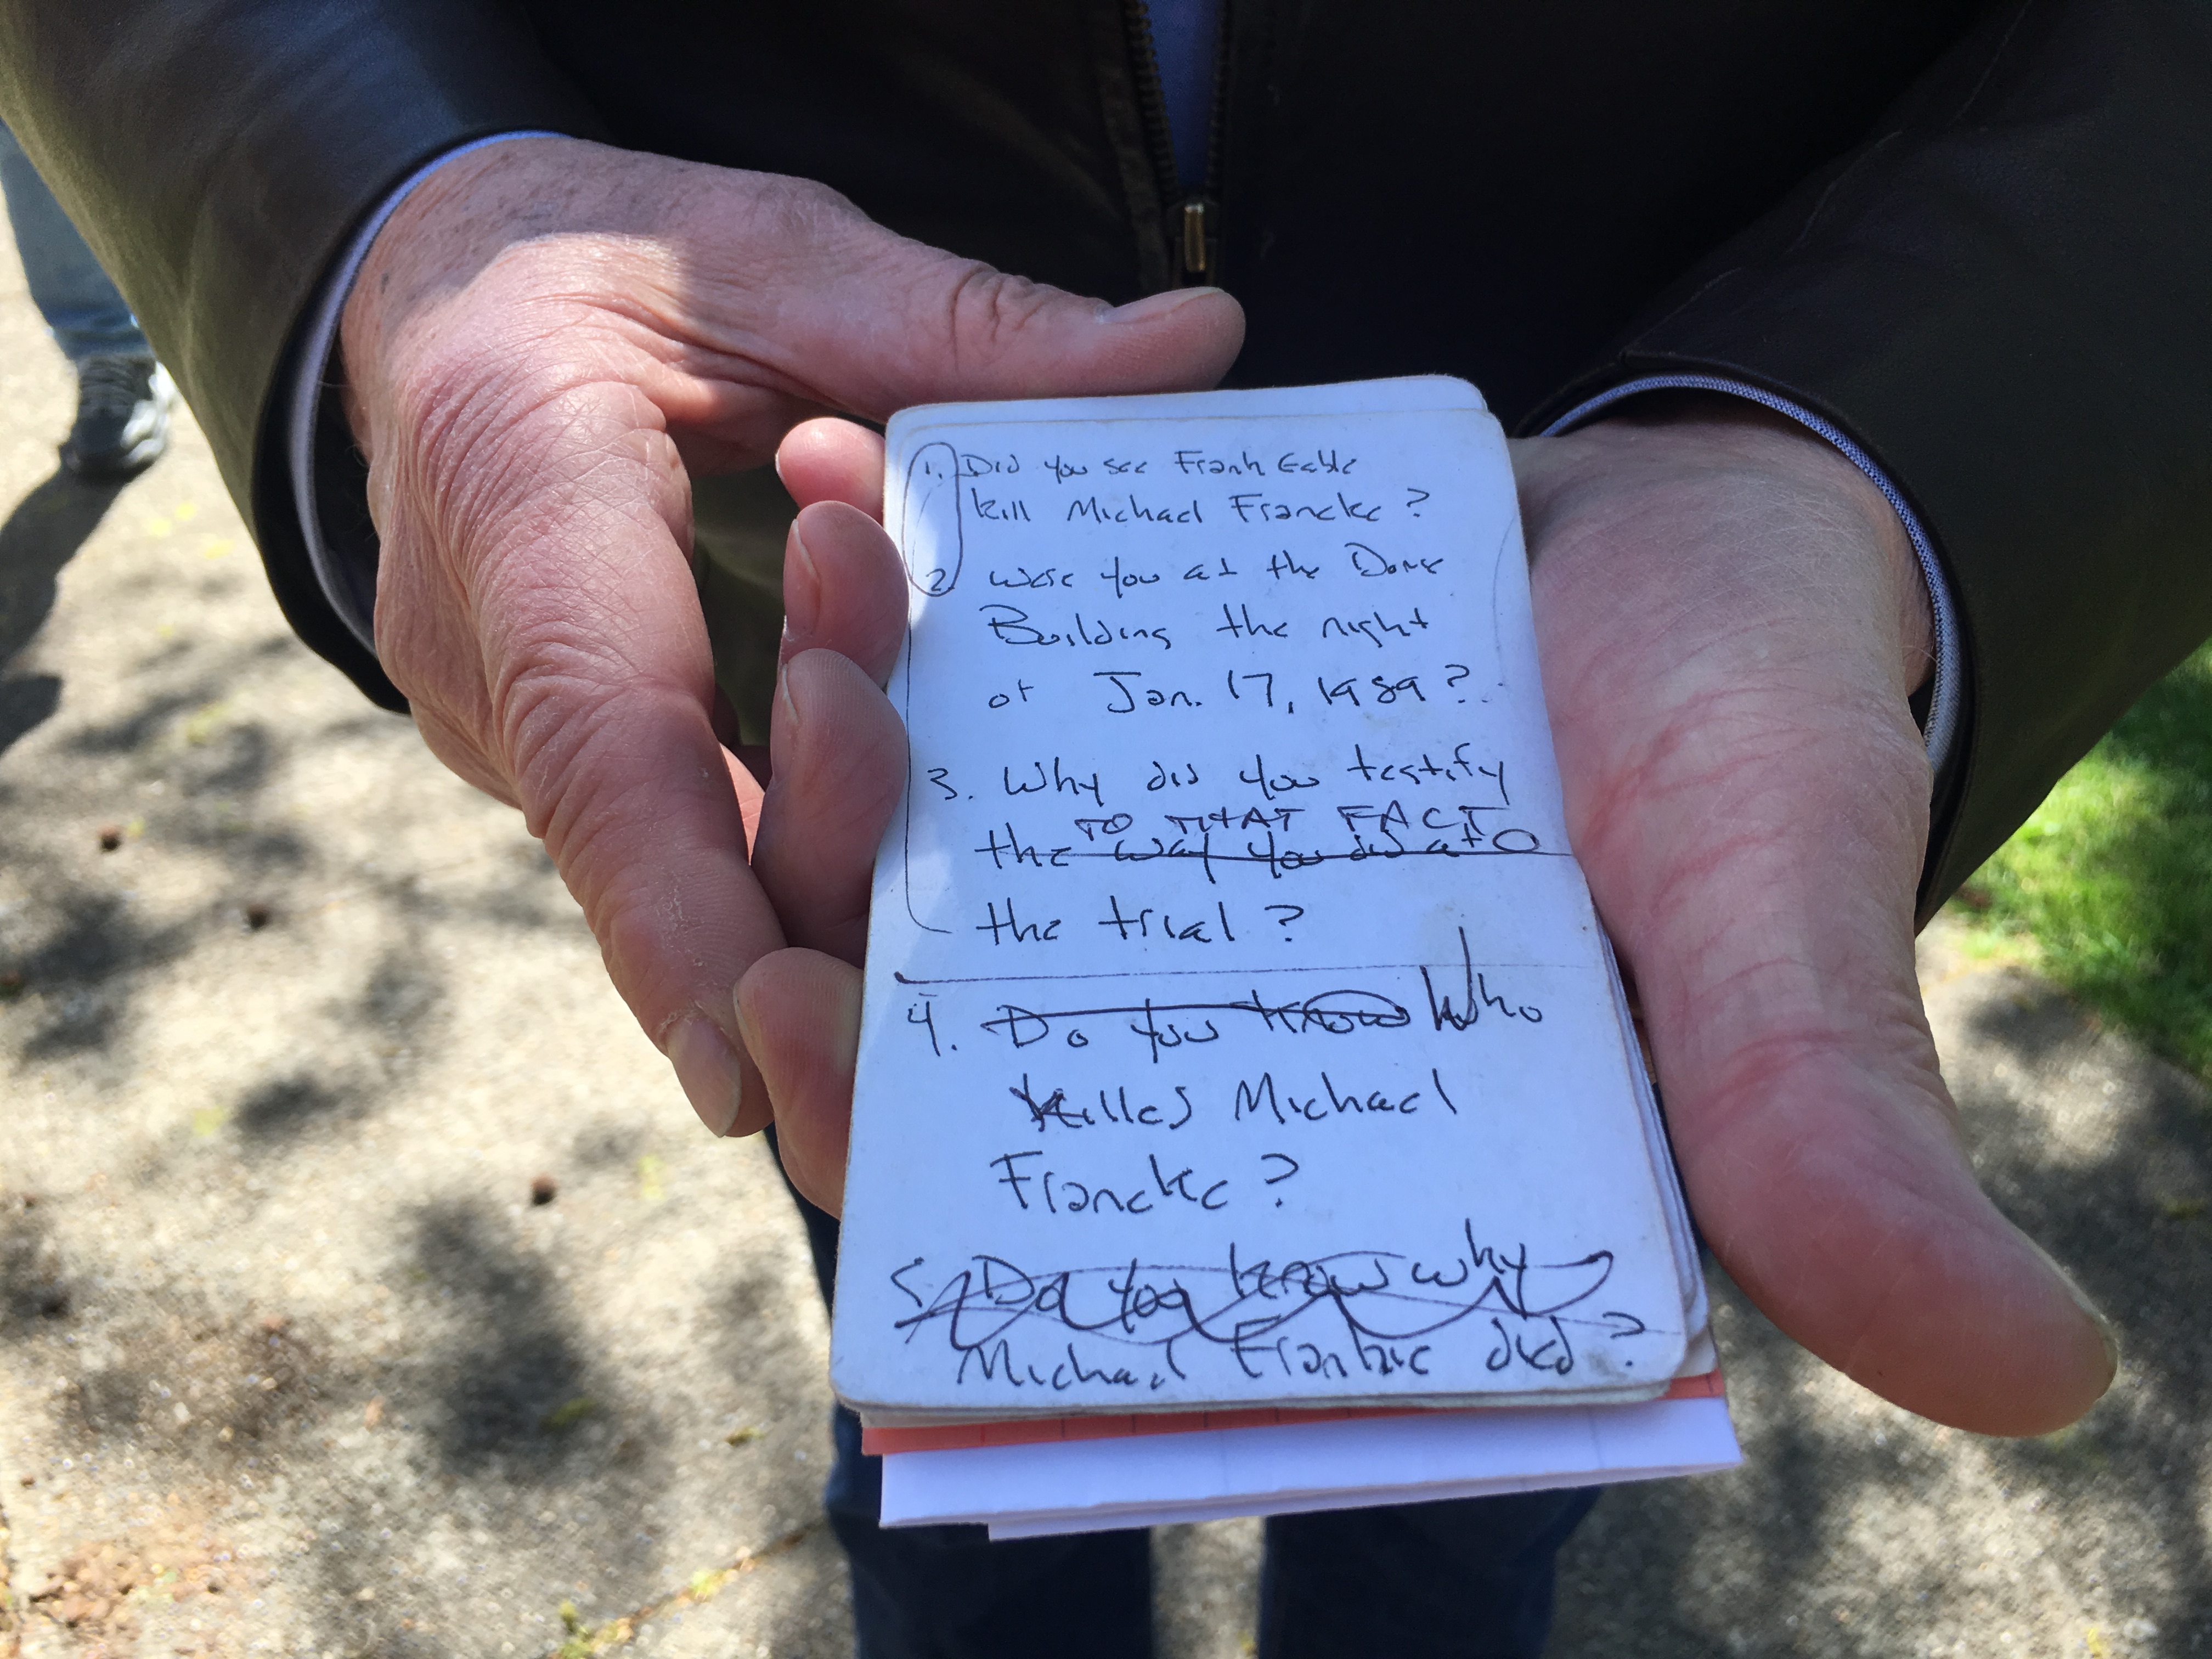 1. Did you see Frank Gable
kill Michael Francke?
2. Were you at the Dome
Building the night
of Jan. 17, 1989?
3. Why did you testify
TO THAT FACT
the way you did at
the trial?
4. Do you know Who
killed Michael
Francke?
5. Do you know why
Michael Franke died?